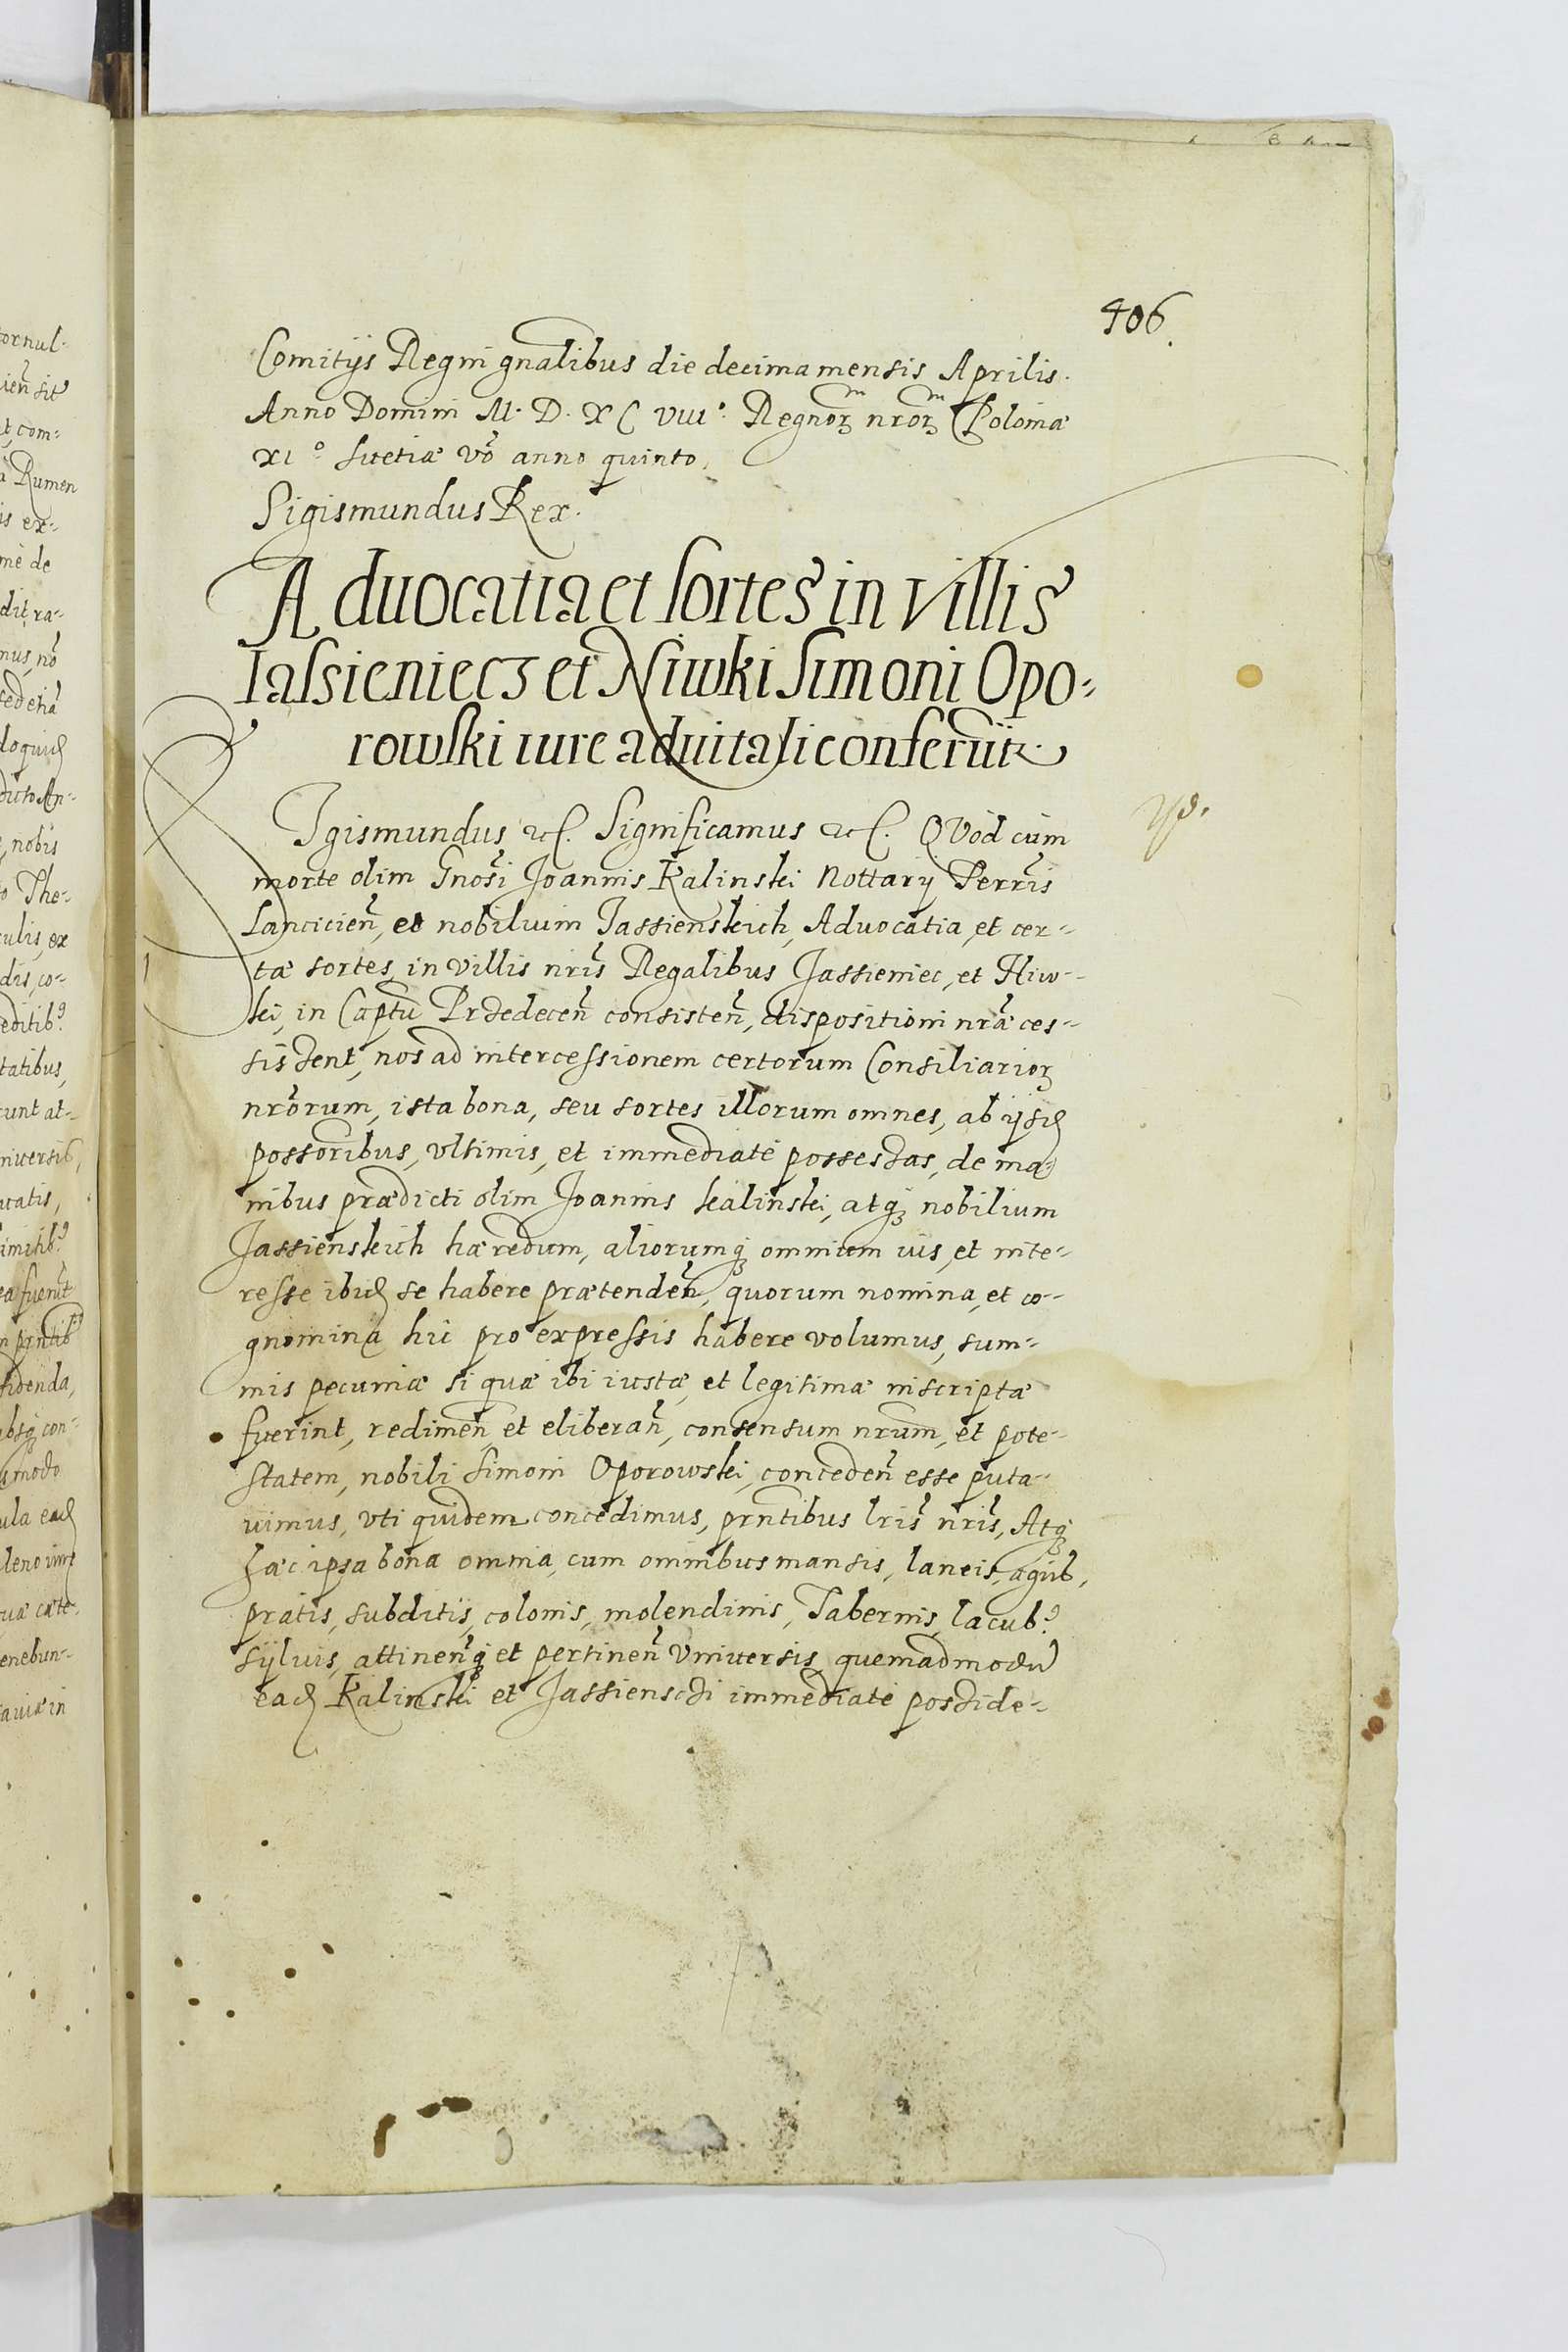 406.
Comitijs Regni gnalibus die decima mensis Aprilis.
Anno Domini M. D. XC VIII°. Regnorꝫ nrorꝫ Poloniæ
XI° Suetiæ vo anno quinto.
Sigismundus Rex.
Aduocatia et sortes in villis
Iassieniecz et Niwki Simoni Opo-
rowski iure aduitali conferuñt.
Sigismundus etc. Significamus etc. Quòd cùm
morte olim Gnosi Joannis Kalinski Nottarij Terris
Lancicieñ, et nobilium Jassienskich, Aduocatia, et cer-
tæ sortes, in villis nris Regalibus Jassieniec, et Niw-
ki, in Captu Prdedeceñ consisteñ, dispositioni nræ ces-
sissent, nos ad intercessionem certorum Consiliariorꝫ
nrorum, ista bona, seu sortes illorum omnes, ab ijsd
possoribus, vltimis, et immediatè possessas, de ma-
nibus prædicti olim Joannis Kalinski, atqꝫ nobilium
Jassienskich hæredum, aliorumqꝫ omnium ius, et inte-
resse ibid se habere prætendeñ, quorum nomina, et co-
gnomina hic pro expressis habere volumus, sum-
mis pecuniæ si quæ ibi iustæ, et legitimæ inscriptæ
fuerint, redimeñ, et eliberañ, consensum nrum, et pote-
statem, nobili Simoni Oporowski, concedeñ esse puta-
uimus, vti quidem concedimus, prntibus lris nris, Atqꝫ
hæc ipsa bona omnia, cum omnibus mansis, laneis, agrib,
pratis, subditis, colonis, molendinis, Tabernis, lacub9
syluis, attineñqꝫ et pertineñ vniuersis, quemadmodu
ead Kalinski et Jassienscÿ immediatè posside-